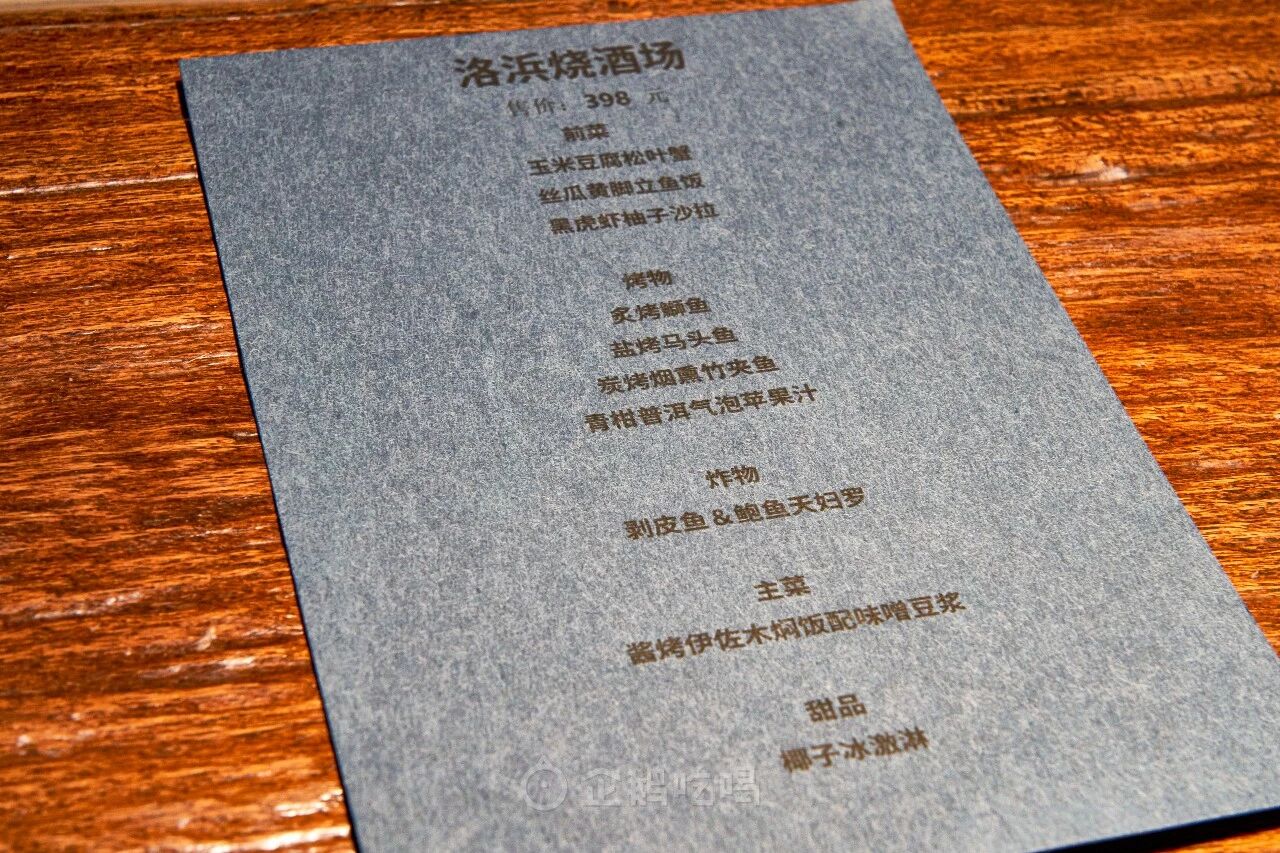 洛浜烧酒场
售价：398 元
前菜
玉米豆腐松叶蟹
丝瓜黄脚立鱼饭
黑虎虾柚子沙拉
烤物
炙烤鰤鱼
盐烤马头鱼
炭烤烟熏竹夹鱼
青柑普洱气泡苹果汁
炸物
剥皮鱼&鲍鱼天妇罗
主菜
酱烤伊佐木焖饭配味噌豆浆
甜品
椰子冰激淋
企鹅吃喝